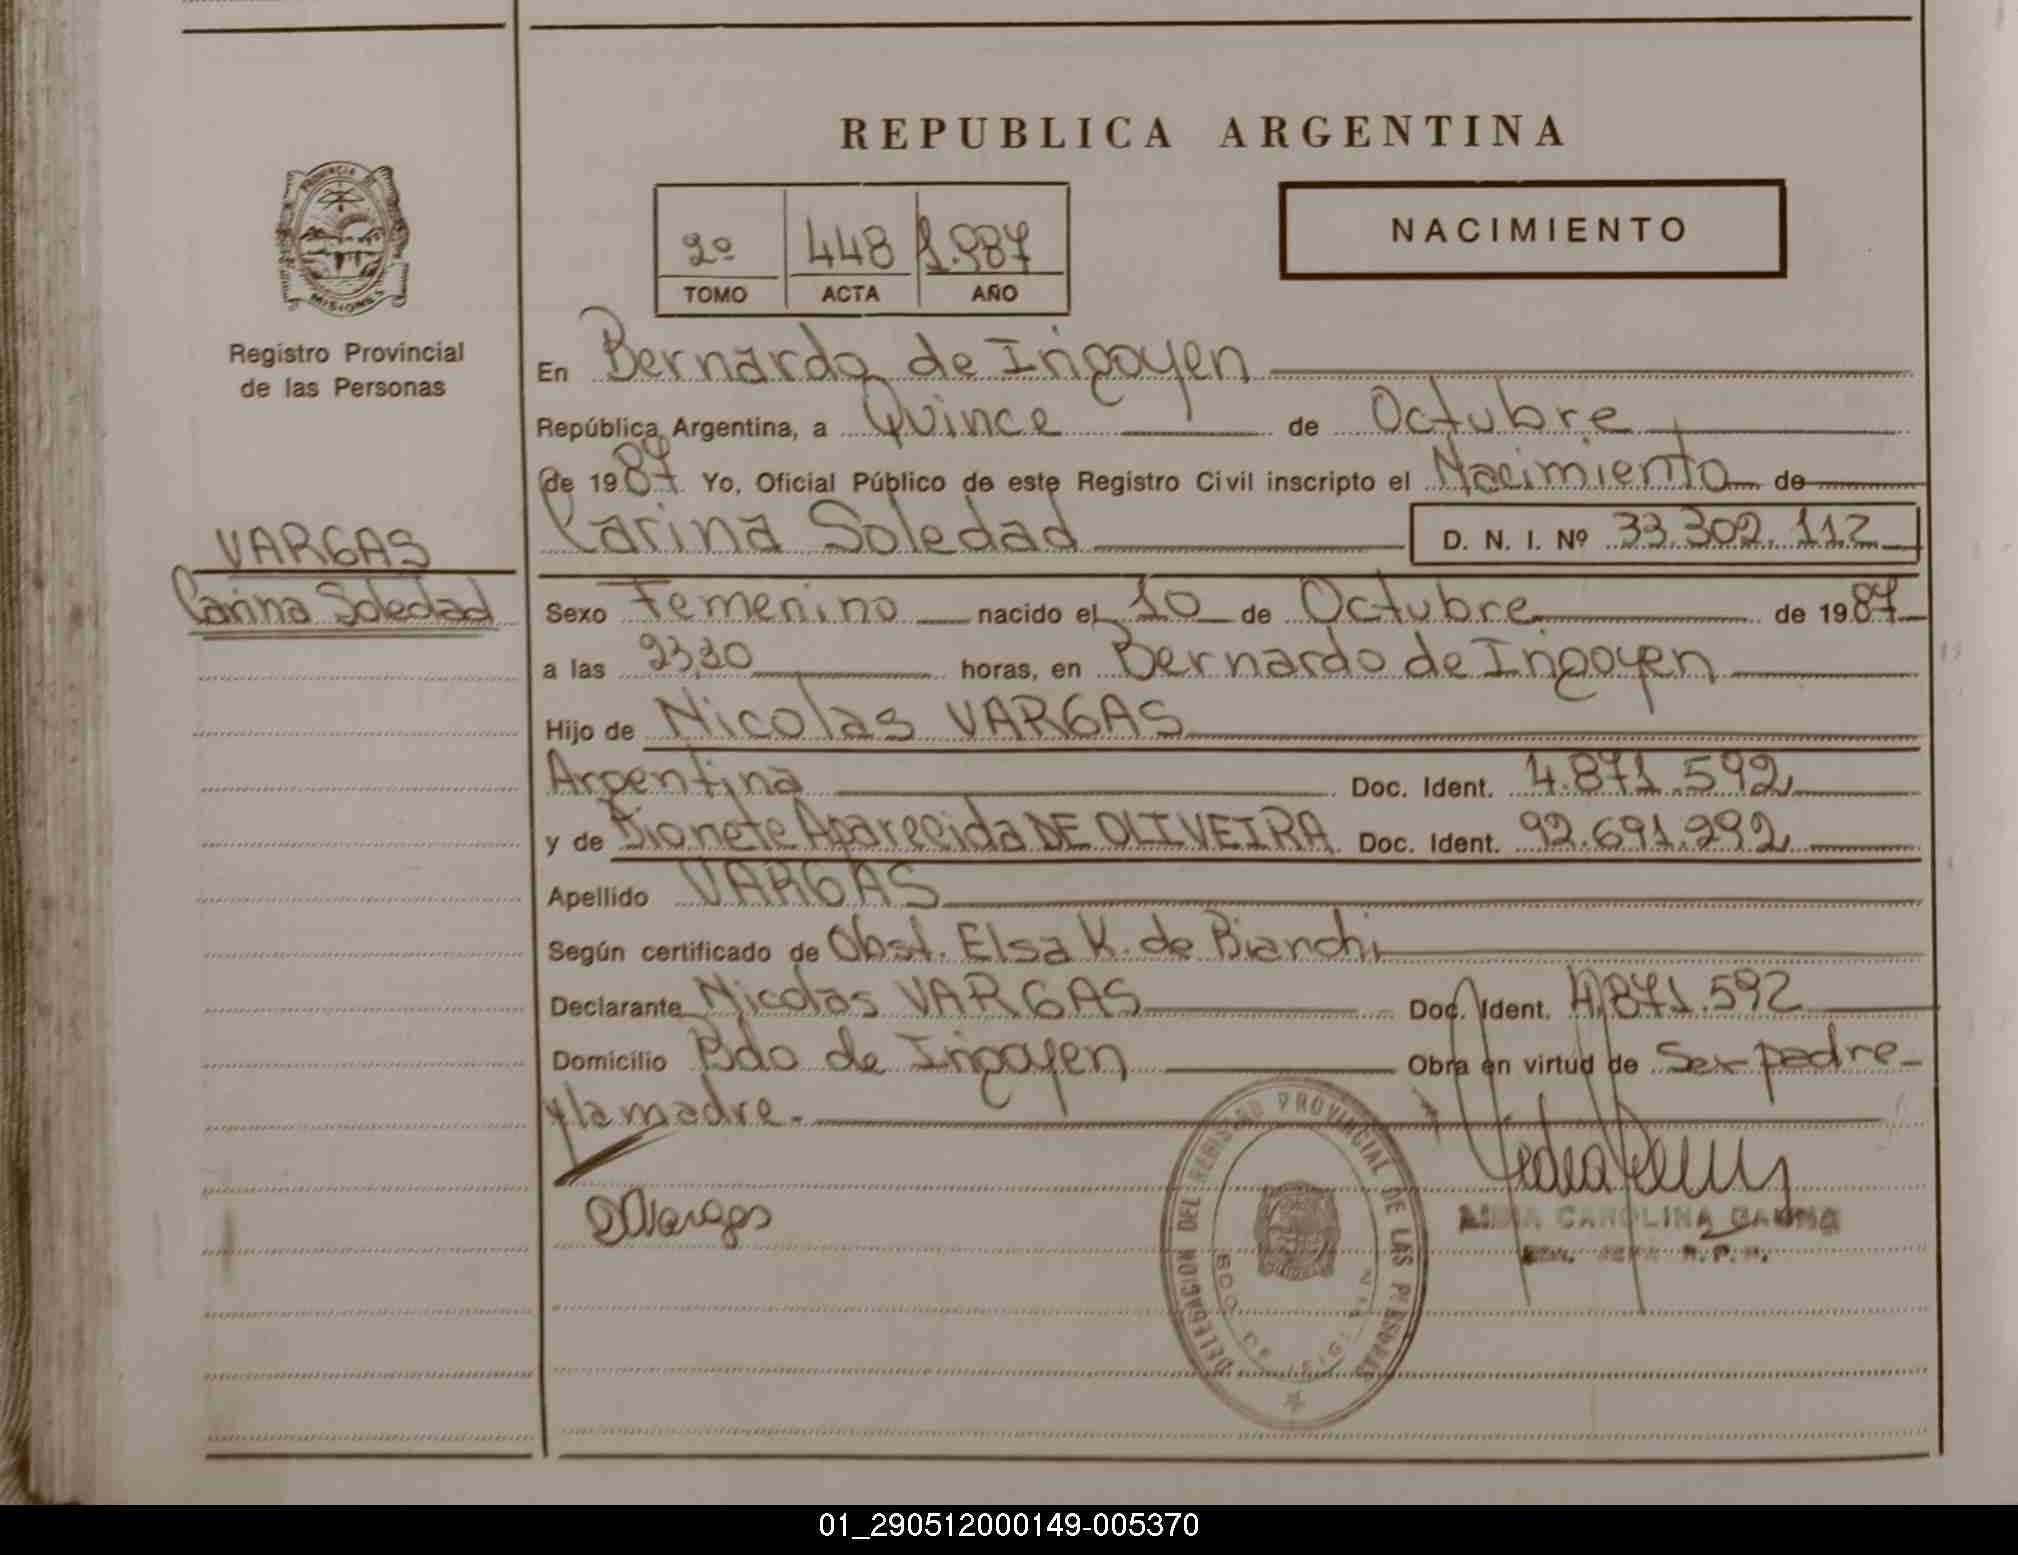 REPUBLICA ARGENTINA
NACIMIENTO
2º 448 1.987
TOMO ACTA AÑO
PROVINCIA DE
MISIONES
Registro Provincial
de las Personas
VARGAS
Carina Soledad
En Bernardo de Irigoyen
República Argentina, a Quince de Octubre
de 1987 Yo, Oficial Público de este Registro Civil inscripto el Nacimiento de
Carina Soledad D. N. I. Nº 33.302.112
Sexo Femenino nacido el 10 de Octubre de 1987
a las 23,30 horas, en Bernardo de Irigoyen
Hijo de Nicolas VARGAS
Argentina Doc. Ident. 4.871.592
y de Dionete Aparecida DE OLIVEIRA Doc. Ident. 92.691.292
Apellido VARGAS
Según certificado de Obst. Elsa K. de Bianchi
Declarante Nicolas VARGAS Doc. Ident. 4.871.592
Domicilio Bdo de Irigoyen Obra en virtud de Ser padre
y la madre.
Vargas
DELEGACION DEL REGISTRO PROVINCIAL DE LAS PERSONAS
BDO DE IRIGOYEN
CAROLINA GAUNA
R. P. P.
01_290512000149-005370